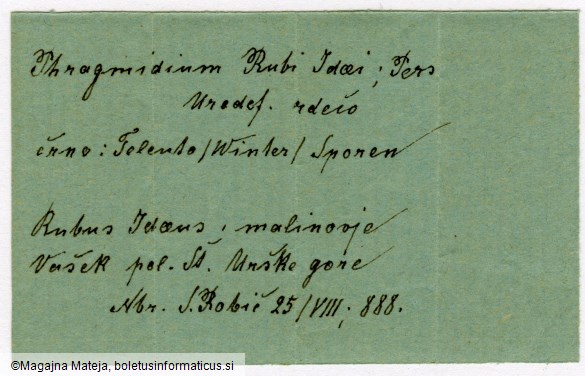 Phragmidium Rubi Idæi; Pers
Uredof. rdečo
črno: Teleuto/Winter/Sporen
Rubus Idæus, malinovje
Vašek pol. Št. Urške gore
Nbr. S. Robič 25/VIII; 888.
©Magajna Mateja, boletusinformaticus.si